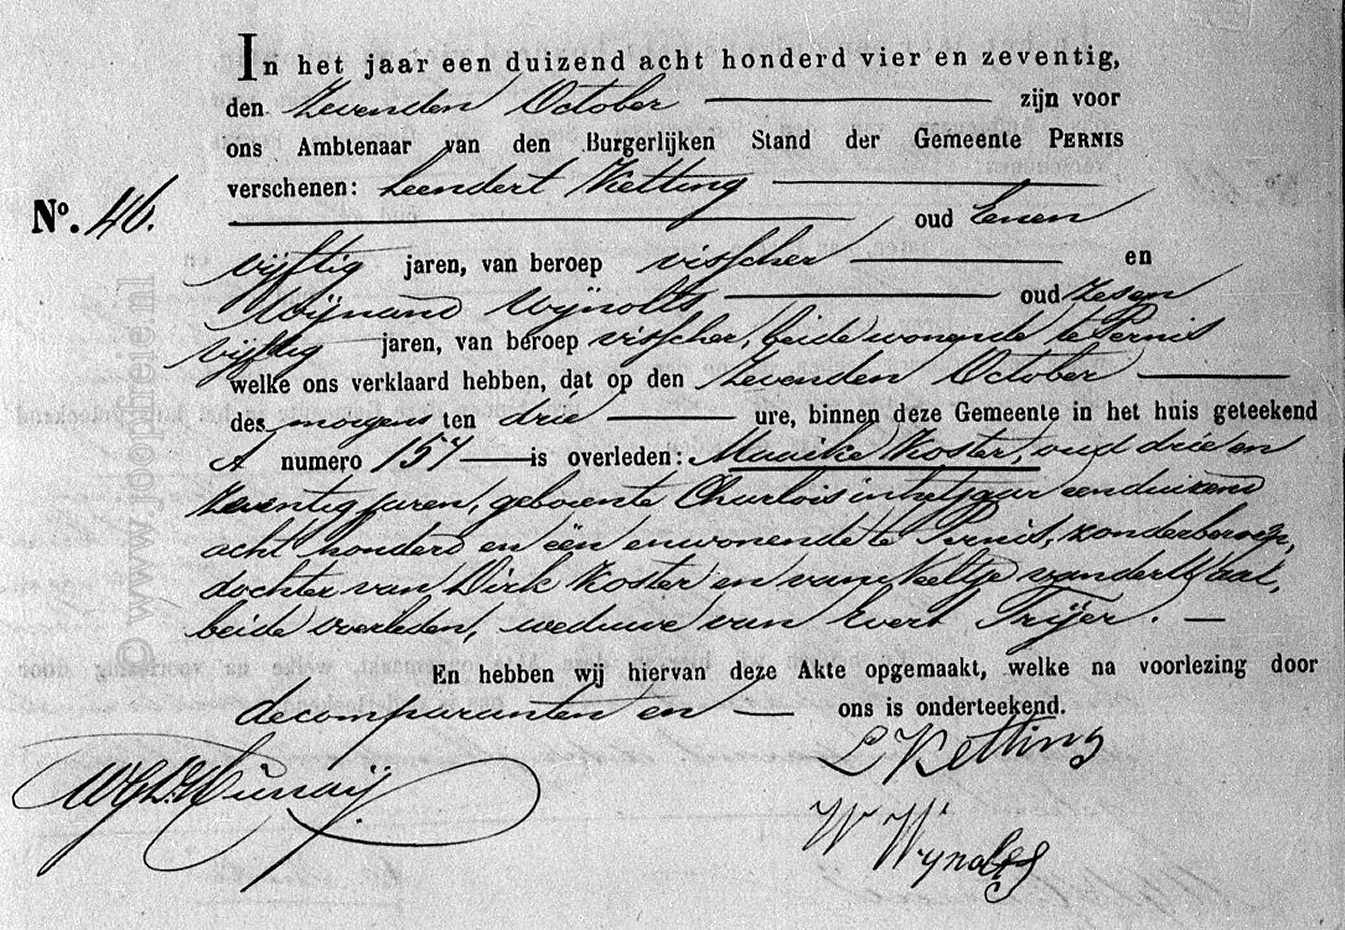 In het jaar een duizend acht honderd vier en zeventig,
den zevenden October zijn voor
ons Ambtenaar van den Burgerlijken Stand der Gemeente PERNIS
verschenen: Leendert Ketting
No. 46. oud Eenen
vijftig jaren, van beroep visscher en
Wijnand Wijnolts oud zesen
vijftig jaren, van beroep visscher, beide wonende te Pernis
welke ons verklaard hebben, dat op den zevenden October
des morgens ten drie ure, binnen deze Gemeente in het huis geteekend
A numero 157 is overleden: Maaike Koster, oud drie en
zeventig jaren, geboren te Charlois in het jaar een duizend
acht honderd en één en wonende te Pernis, zonder beroep,
dochter van Dirk Koster en van Neeltje van der Waal,
beide overleden, weduwe van Evert Trijer.
En hebben wij hiervan deze Akte opgemaakt, welke na voorlezing door
de comparanten en ons is onderteekend.
L Ketting
W Wynolts
© www.joopfreie.nl